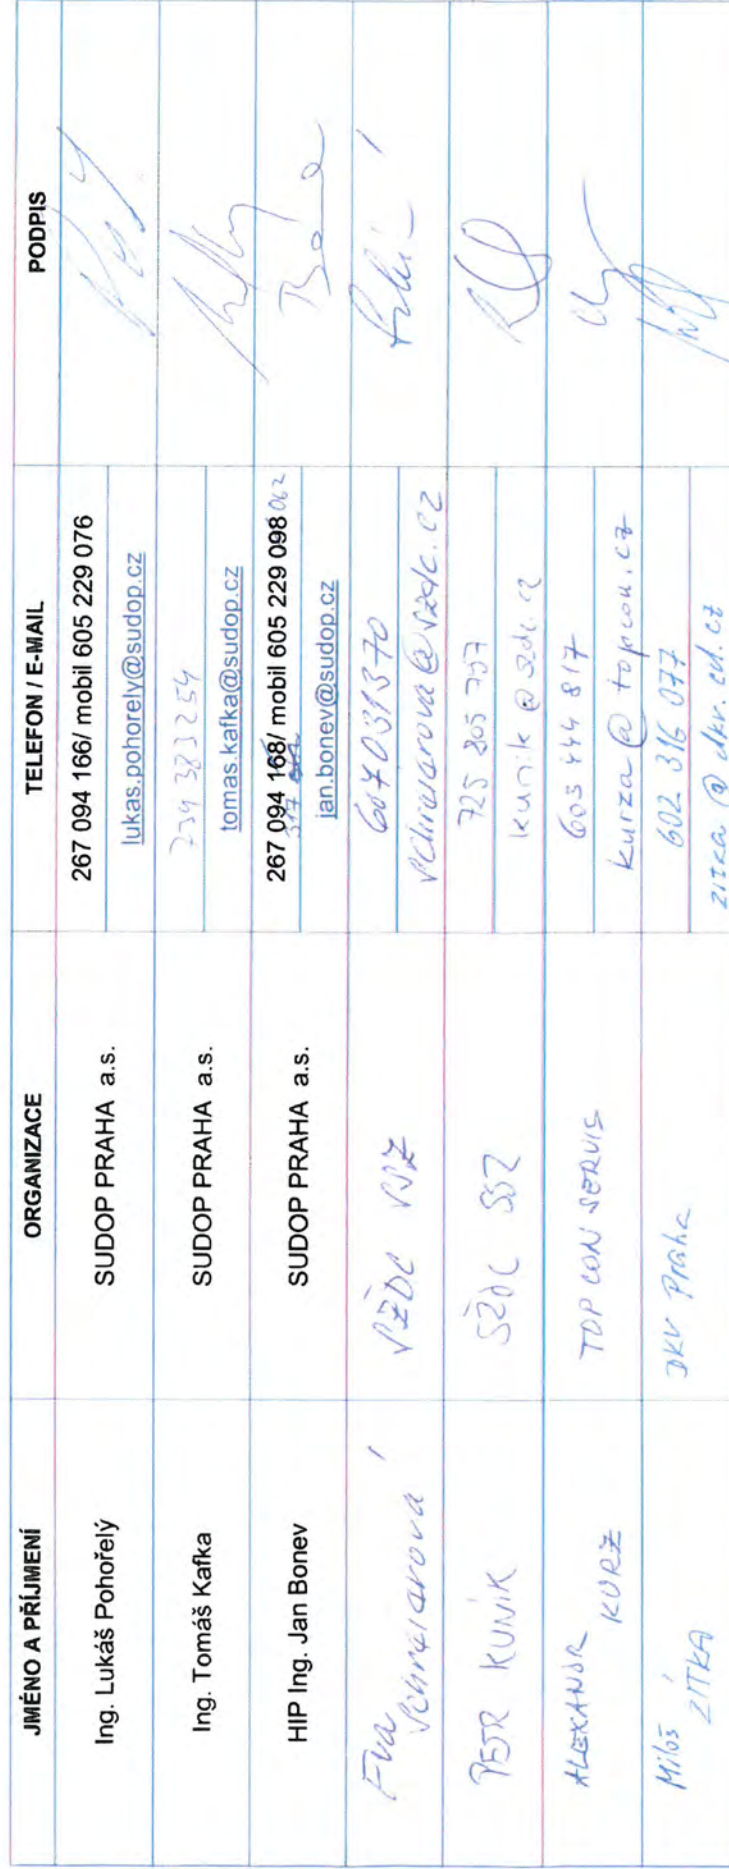 JMÉNO A PŘÍJMENÍ ORGANIZACE TELEFON / E-MAIL PODPIS
Ing. Lukáš Pohořelý SUDOP PRAHA a.s. 267 094 166/ mobil 605 229 076
lukas.pohorely@sudop.cz
Ing. Tomáš Kafka SUDOP PRAHA a.s. 739 383 254
tomas.kafka@sudop.cz
HIP Ing. Jan Bonev SUDOP PRAHA a.s. 267 094 168/ mobil 605 229 098 062
317
jan.bonev@sudop.cz
Eva SŽDC SSZ 607 031 370
PETR KUNÍK SŽDC SSZ 725 805 797
kunik@szdc.cz
ALEXANDR KURZ TOP CON SERVIS 603 444 817
kurza@topcon.cz
Miloš ZÍTKA DKV Praha 602 316 077
zitka@dkv.cd.cz